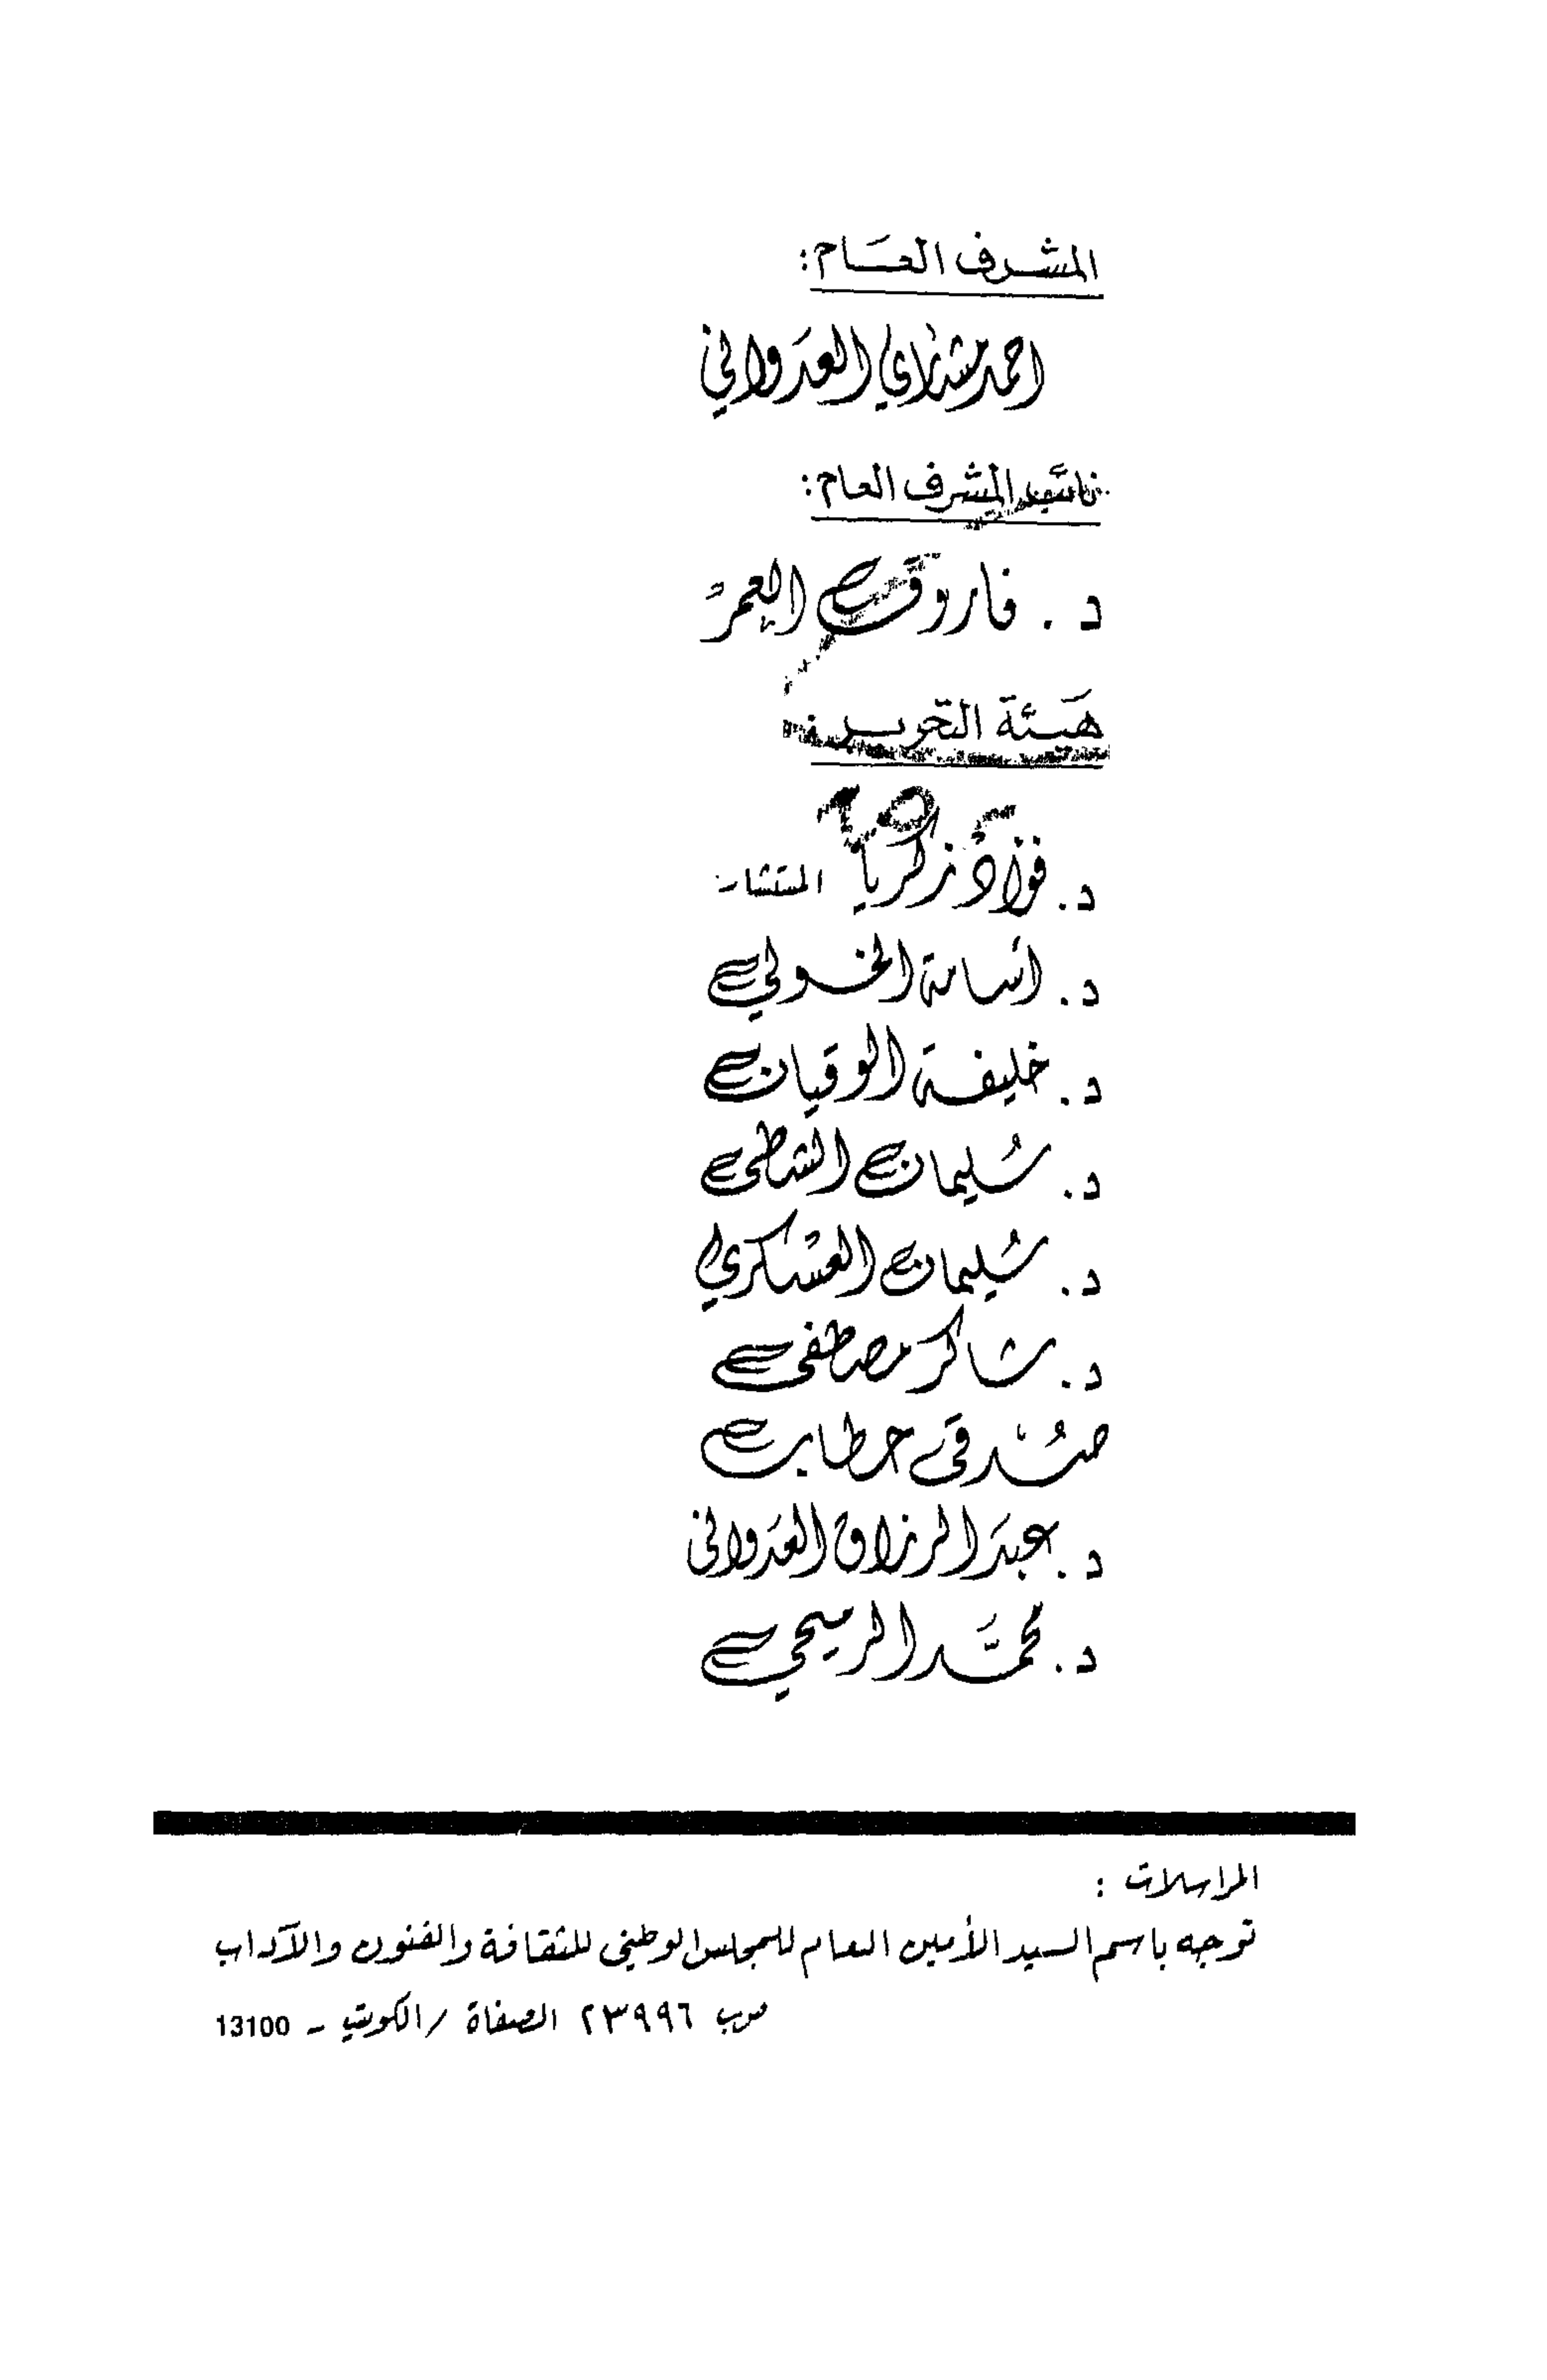 المشرف العام:
احمد مشاري العدواني
نائب المشرف العام:
د. فاروق العمر
هيئة التحرير:
د. فؤاد زكريا المستشار
د. أسامة الخولي
د. خليفة الوقيان
د. سليمان الشطي
د. سليمان العسكري
د. شاكر مصطفى
صدقي حطاب
د. عبد الرزاق العدواني
د. محمد الرميحي
المراسلات :
توجه باسم السيد الأمين العام للمجلس الوطني للثقافة والفنون والآداب
ص.ب ٢٣٩٩٦ الصفاة / الكويت - 13100